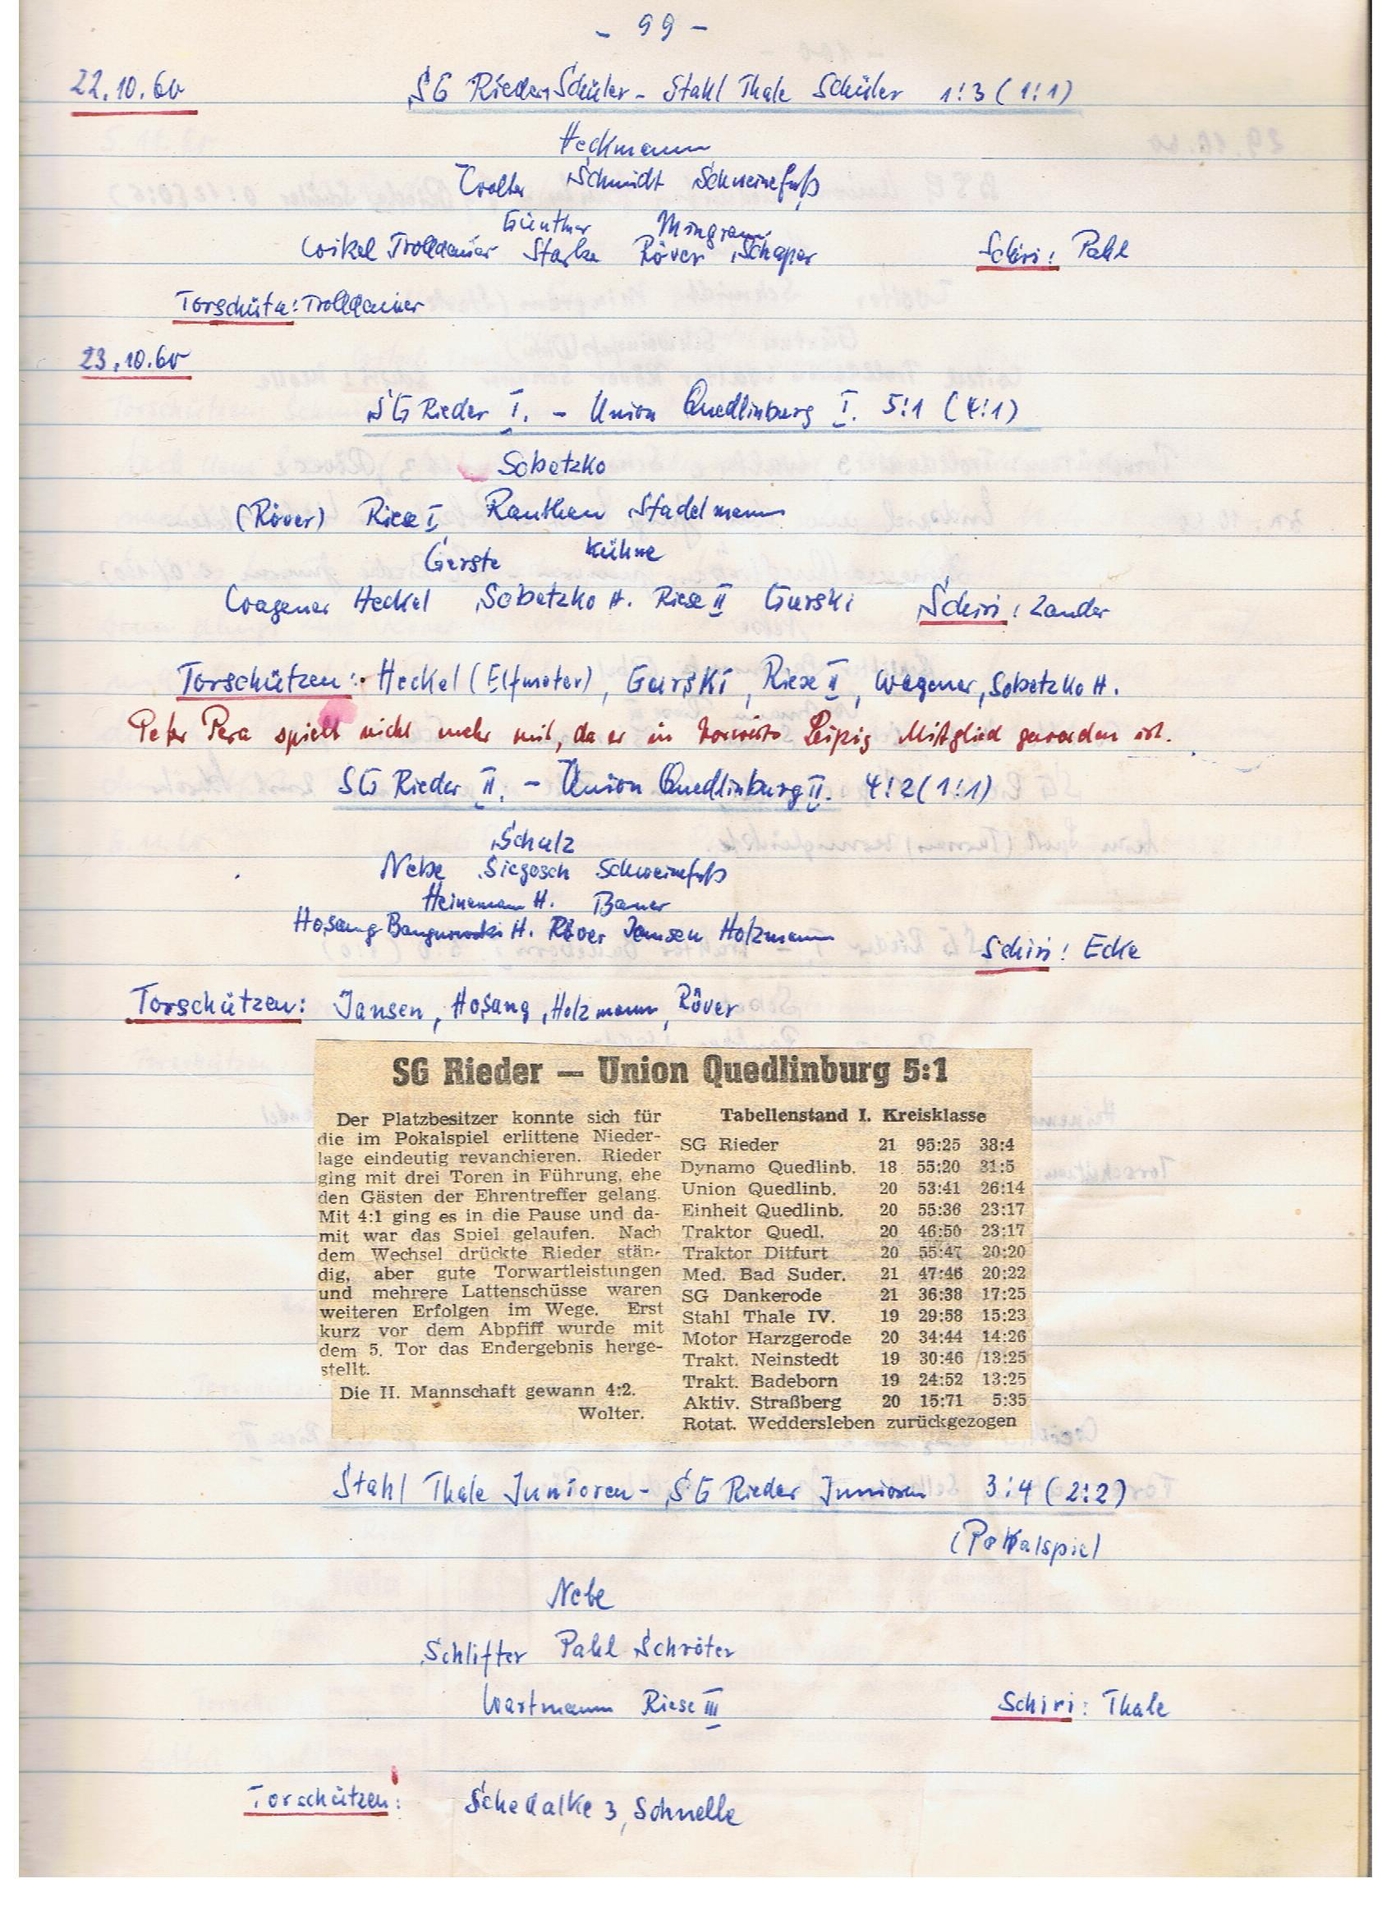 - 99 -
22.10.60 SG Rieder Schüler - Stahl Thale Schüler 1:3 (1:1)
Heckmann
Wolter Schmidt Schweinefuß
Günther Mingram
Weikel Trolldenier Starke Röver Schaper Schiri: Pahl
Torschütze: Trolldenier
23.10.60
SG Rieder I. - Union Quedlinburg I. 5:1 (4:1)
Sobetzko
(Röver) Riese I Ranthen Stadelmann
Gerste Kühne
Wagener Heckel Sobetzko H. Riese II Gurski Schiri: Zander
Torschützen: Heckel (Elfmeter), Gurski, Riese II, Wagener, Sobetzko H.
Peter Pera spielt nicht mehr mit, da er in Vorwärts Leipzig Mitglied geworden ist.
SG Rieder II. - Union Quedlinburg II. 4:2 (1:1)
Schulz
Nebe Siegosch Schweinefuß
Heinemann H. Bauer
Hosang H. Röver Jansen Holzmann Schiri: Ecke
Torschützen: Jansen, Hosang, Holzmann, Röver
SG Rieder — Union Quedlinburg 5:1
Der Platzbesitzer konnte sich für
die im Pokalspiel erlittene Nieder-
lage eindeutig revanchieren. Rieder
ging mit drei Toren in Führung, ehe
den Gästen der Ehrentreffer gelang.
Mit 4:1 ging es in die Pause und da-
mit war das Spiel gelaufen. Nach
dem Wechsel drückte Rieder stän-
dig, aber gute Torwartleistungen
und mehrere Lattenschüsse waren
weiteren Erfolgen im Wege. Erst
kurz vor dem Abpfiff wurde mit
dem 5. Tor das Endergebnis herge-
stellt.
Die II. Mannschaft gewann 4:2.
Wolter.
Tabellenstand I. Kreisklasse
SG Rieder 21 95:25 38:4
Dynamo Quedlinb. 18 55:20 31:5
Union Quedlinb. 20 53:41 26:14
Einheit Quedlinb. 20 55:36 23:17
Traktor Quedl. 20 46:50 23:17
Traktor Ditfurt 20 55:47 20:20
Med. Bad Suder. 21 47:46 20:22
SG Dankerode 21 36:38 17:25
Stahl Thale IV. 19 29:58 15:23
Motor Harzgerode 20 34:44 14:26
Trakt. Neinstedt 19 30:46 13:25
Trakt. Badeborn 19 24:52 13:25
Aktiv. Straßberg 20 15:71 5:35
Rotat. Weddersleben zurückgezogen
Stahl Thale Junioren - SG Rieder Junioren 3:4 (2:2)
(Pokalspiel
Nebe
Schlifter Pahl Schröter
Wartmann Riese III Schiri: Thale
Torschützen: Schedalke 3, Schnelle